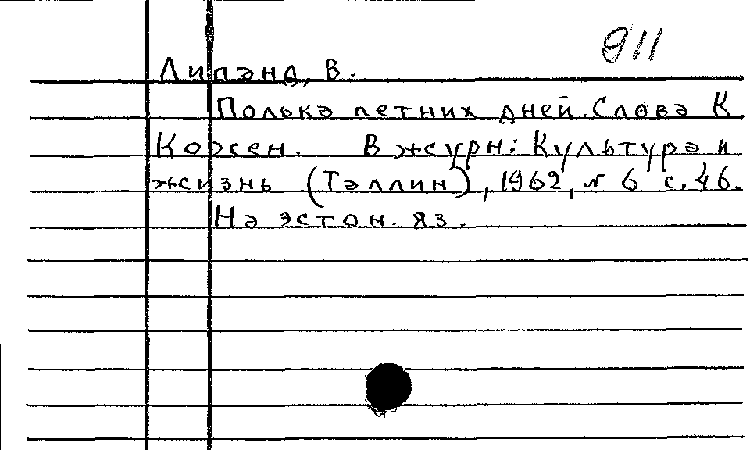 911
Липанд, В.
Полька летних дней. Слова К
Корсен. В журн: Культура и
жизнь (Таллин), 1962, № 6 с. 46.
На эстон. яз.